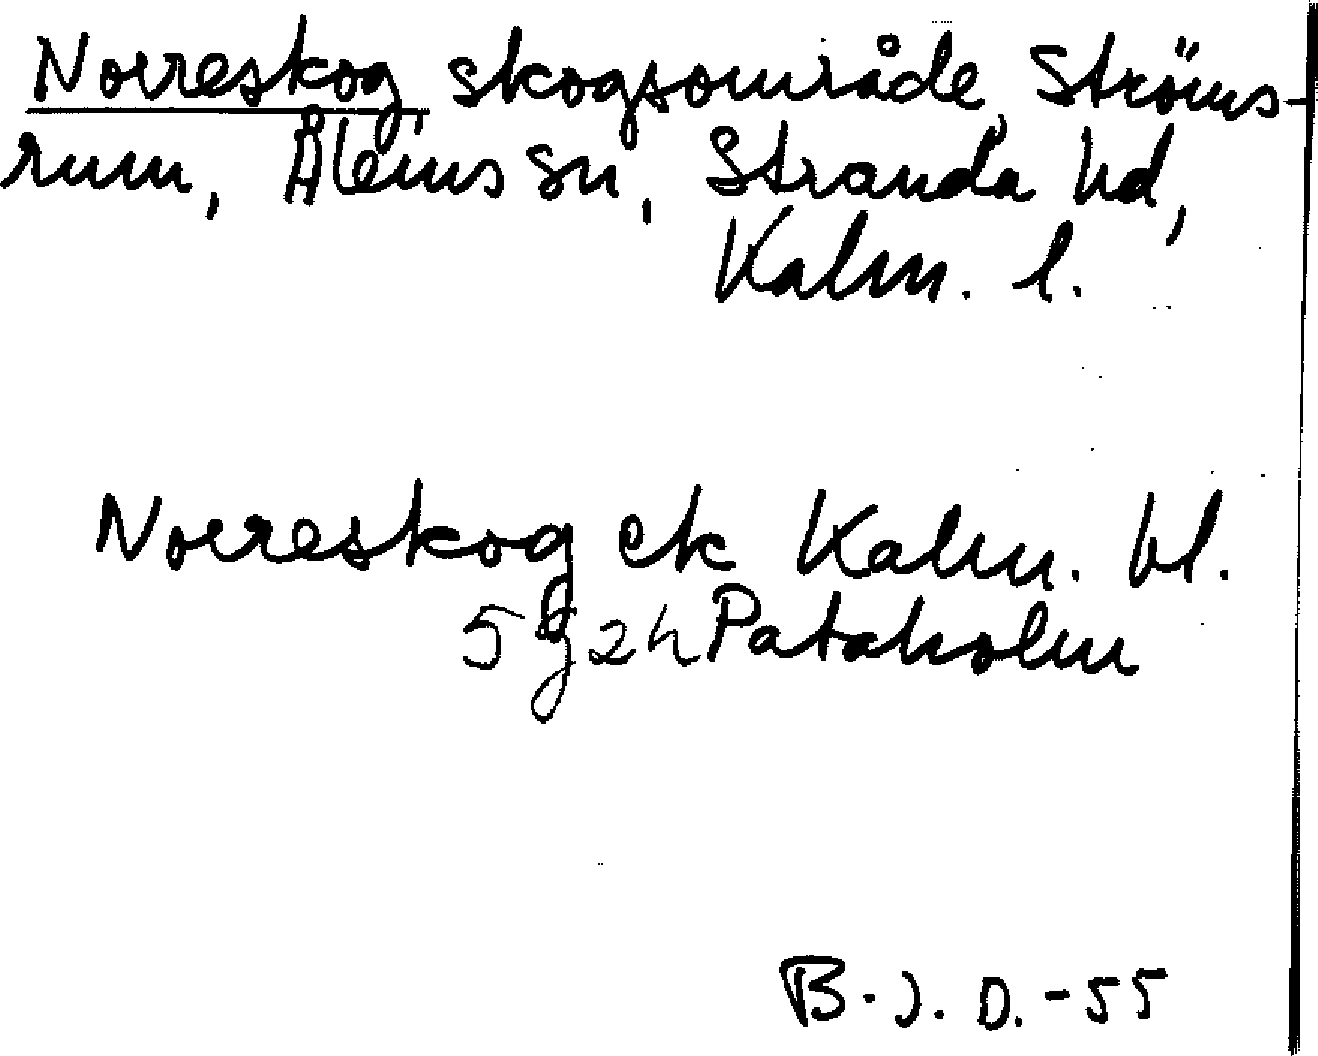 Norreskog, skogsområde, Ströms-
rum, Ålems sn, Stranda hd,
Kalm. l.
Norreskog ek Kalm. bl.
5g 2h Pataholm
B.J.D.-55